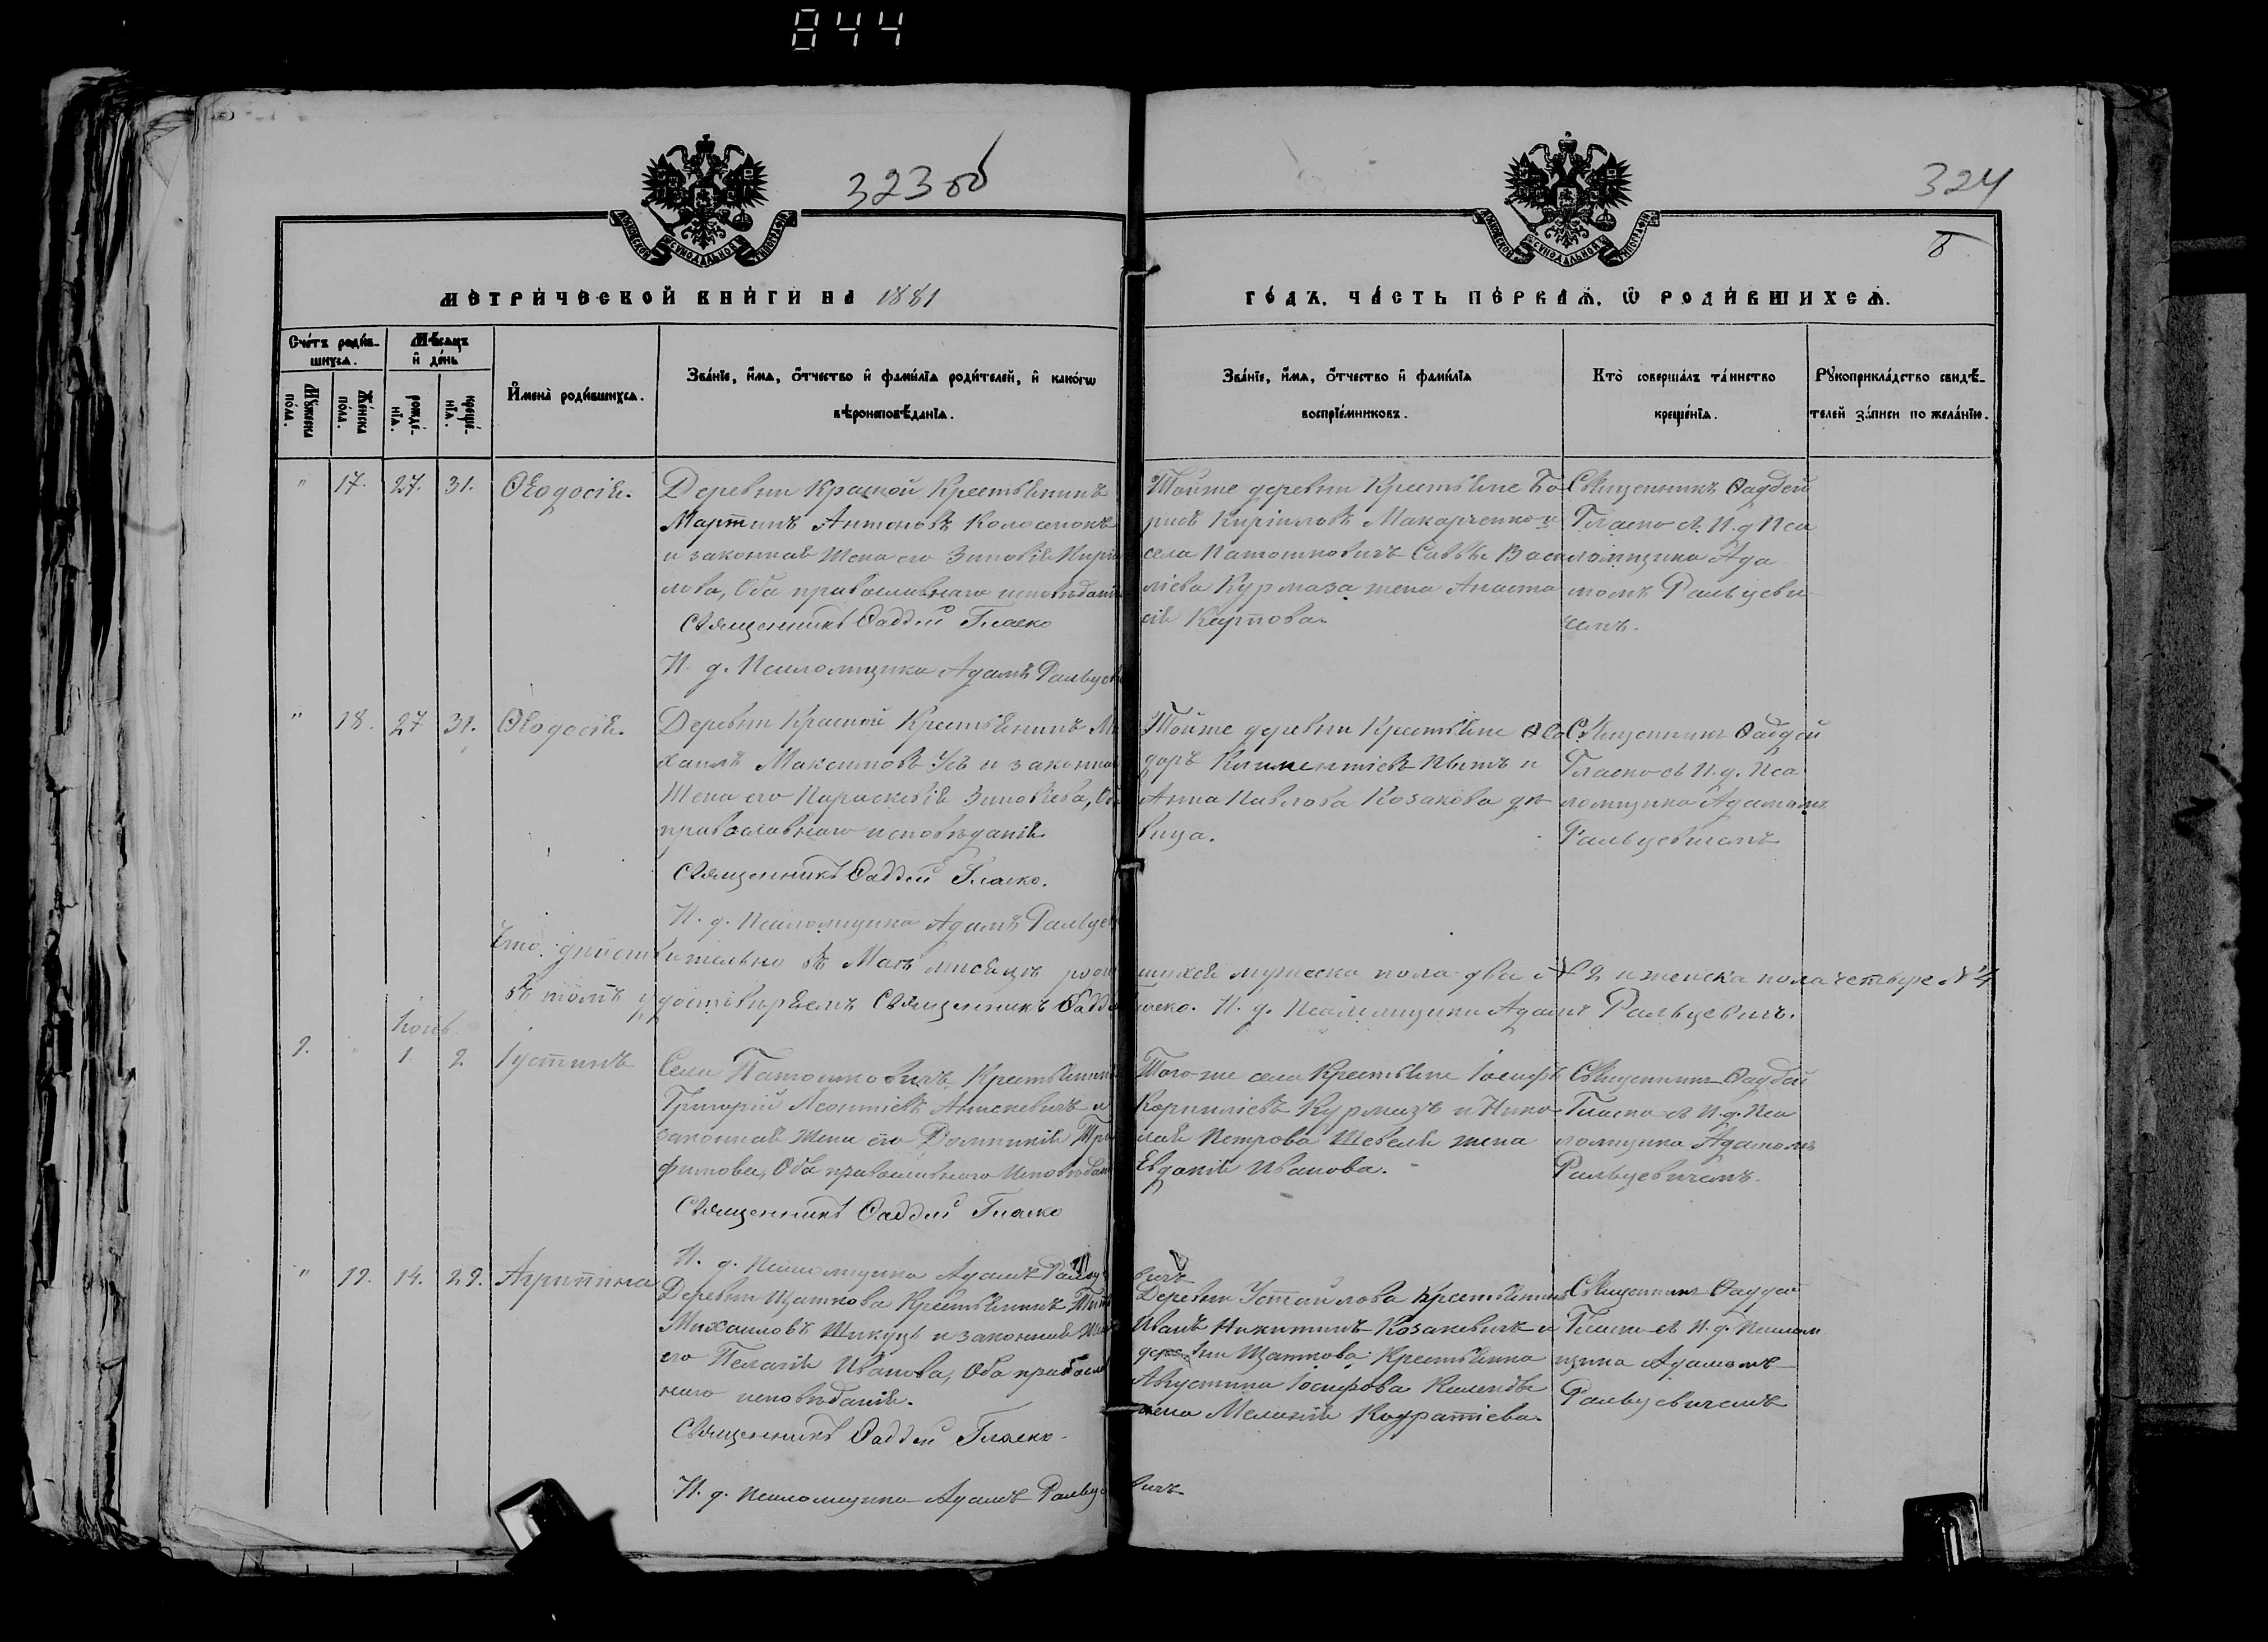 844
323 об
324
МОСКОВСКОЙ СѴНОДАЛЬНОЙ ТИПОГРАФІИ
МОСКОВСКОЙ СѴНОДАЛЬНОЙ ТИПОГРАФІИ
МЕТРИЧЕСКОЙ КНИГИ НА 1881
ГОДЪ, ЧАСТЬ ПЕРВАЯ, Ѡ РОДИВШИХСЯ.
Счетъ родив-
шихся.
Мѣсяцъ
и день
Мужеска
пола.
Женска
пола.
рожде-
нія.
креще-
нія.
Имена родившихся.
Званіе, имя, отчество и фамилія родителей, и какогѡ
вѣроисповѣданія.
Званіе, имя, отчество и фамилія
воспріемниковъ.
Кто совершалъ таинство
крещенія.
Рукоприкладство свидѣ-
телей записи по желанію.
" 17. 27. 31. Ѳеодосія.
Деревни Красной Крестьянинъ
Мартинъ Антоновъ
и законная жена его Зиновія Кири
лова, Оба православнаго исповѣданія
Священникъ Ѳаддей Гласко
И. д. Псаломщика Адамъ
Тойже деревни Крестьяне Бо
рисъ Кирилловъ Макарченко и
села Патошковичъ Саввы Васи
ліева Курмаза жена Анаста
сія Карпова.
Священникъ Ѳаддей
Гласко съ И. д. Пса
ломщика Ада
момъ Ральцеви
чемъ.
" 18. 27 31. Ѳеодосія.
Деревни Красной Крестьянинъ Ми
хаилъ Максимовъ и законная
Жена его Параскевія Зиновіева, Оба
православнаго исповѣданія.
Священникъ Ѳаддей Гласко.
И. д. Псаломщика Адамъ
Тойже деревни Крестьяне Ѳео
доръ Климентіевъ и
Анна Павлова Козакова дѣ
вица.
Священникъ Ѳаддей
Гласко съ И. д. Пса
ломщика Адамомъ
Ральцевичемъ
Что дѣйствительно въ Маѣ мѣсяцѣ родившихся мужеска пола два № 2 и женска пола четыре № 4
въ томъ удостовѣряемъ Священникъ Ѳаддей Гласко. И. д. Псаломщика Адамъ Ральцевичъ.
Іюнь.
9. 1. 2 Іустинъ
Села Патошковичъ Крестьянинъ
Григорій Леонтіевъ и
законная жена его Домникія Тро
фимова, Оба православнаго Исповѣданія
Священникъ Ѳаддей Гласко
И. д. Псаломщика Адамъ Ральцевичъ
Того же села Крестьяне Іосифъ
Корниліевъ Курмазъ и Нико
лая Петрова Шевеля жена
Евдокія Иванова.
Священникъ Ѳаддей
Гласко съ И. д. Пса
ломщика Адамомъ
Ральцевичемъ.
" 19. 14. 29. Агрипина
Деревни Щаткова Крестьянинъ
Михаиловъ и законная жена
его Пелагія Иванова, Оба православ
наго исповѣданія.
Священникъ Ѳаддей Гласко.
И. д. Псаломщика Адамъ Ральцевичъ
Деревни Устайлова Крестьянинъ
Иванъ Никитинъ Козакевичъ и
деревни Щаткова: Крестьянина
Августина Іосифова
жена Меланія Кодратіева.
Священникъ Ѳаддей
Гласко съ И. д. Псалом
щика Адамомъ
Ральцевичемъ